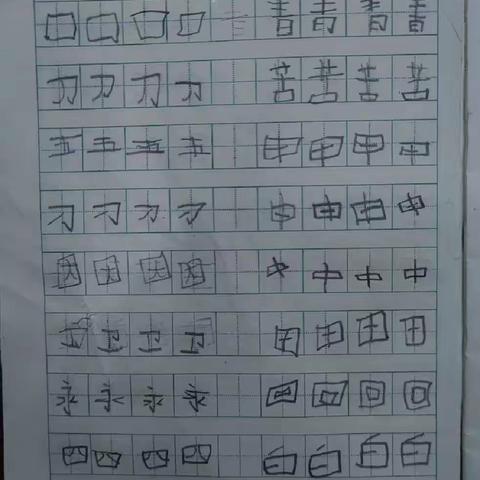 口 口 口 口 青 青 青 青
刀 刀 刀 刀 苦 苦 苦 苦
五 五 五 五 甲 甲 甲 甲
刁 刁 刁 刁 申 申 申 申
因 因 因 因 中 中 中 中
卫 卫 卫 卫 田 田 田 田
永 永 永 永 回 回 回 回
四 四 四 四 白 白 白 白